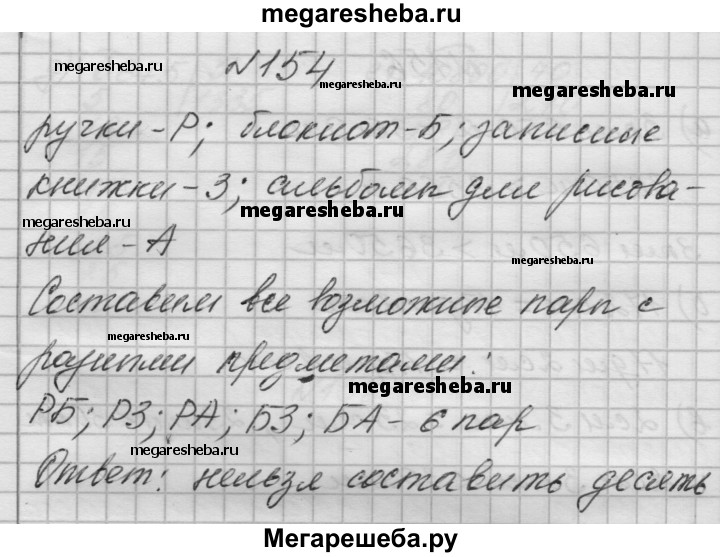 megaresheba.ru
№154
megaresheba.ru
megaresheba.ru
megaresheba.ru
ручки-Р; блокнот-Б; записные
книжки-З; альбомы для рисова-
megaresheba.ru
megaresheba.ru
ния-А
megaresheba.ru
Составим все возможные пары с
megaresheba.ru
разными предметами:
megaresheba.ru
РБ; РЗ; РА; БЗ; БА- 6 пар
megaresheba.ru
Ответ: нельзя составить десять
Мегарешеба.ру